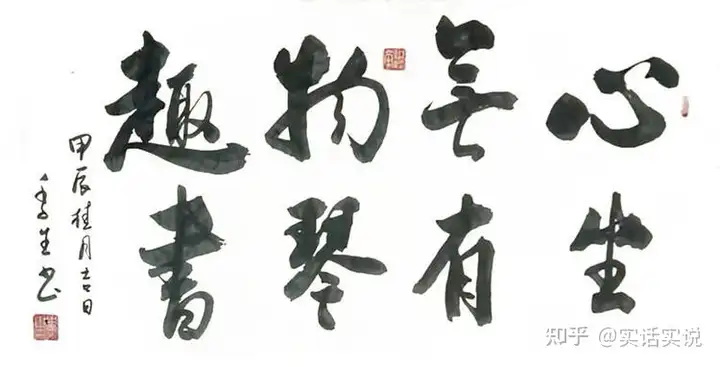 心無物趣
坐有琴書
甲辰桂月吉日
生书
知乎 @实话实说